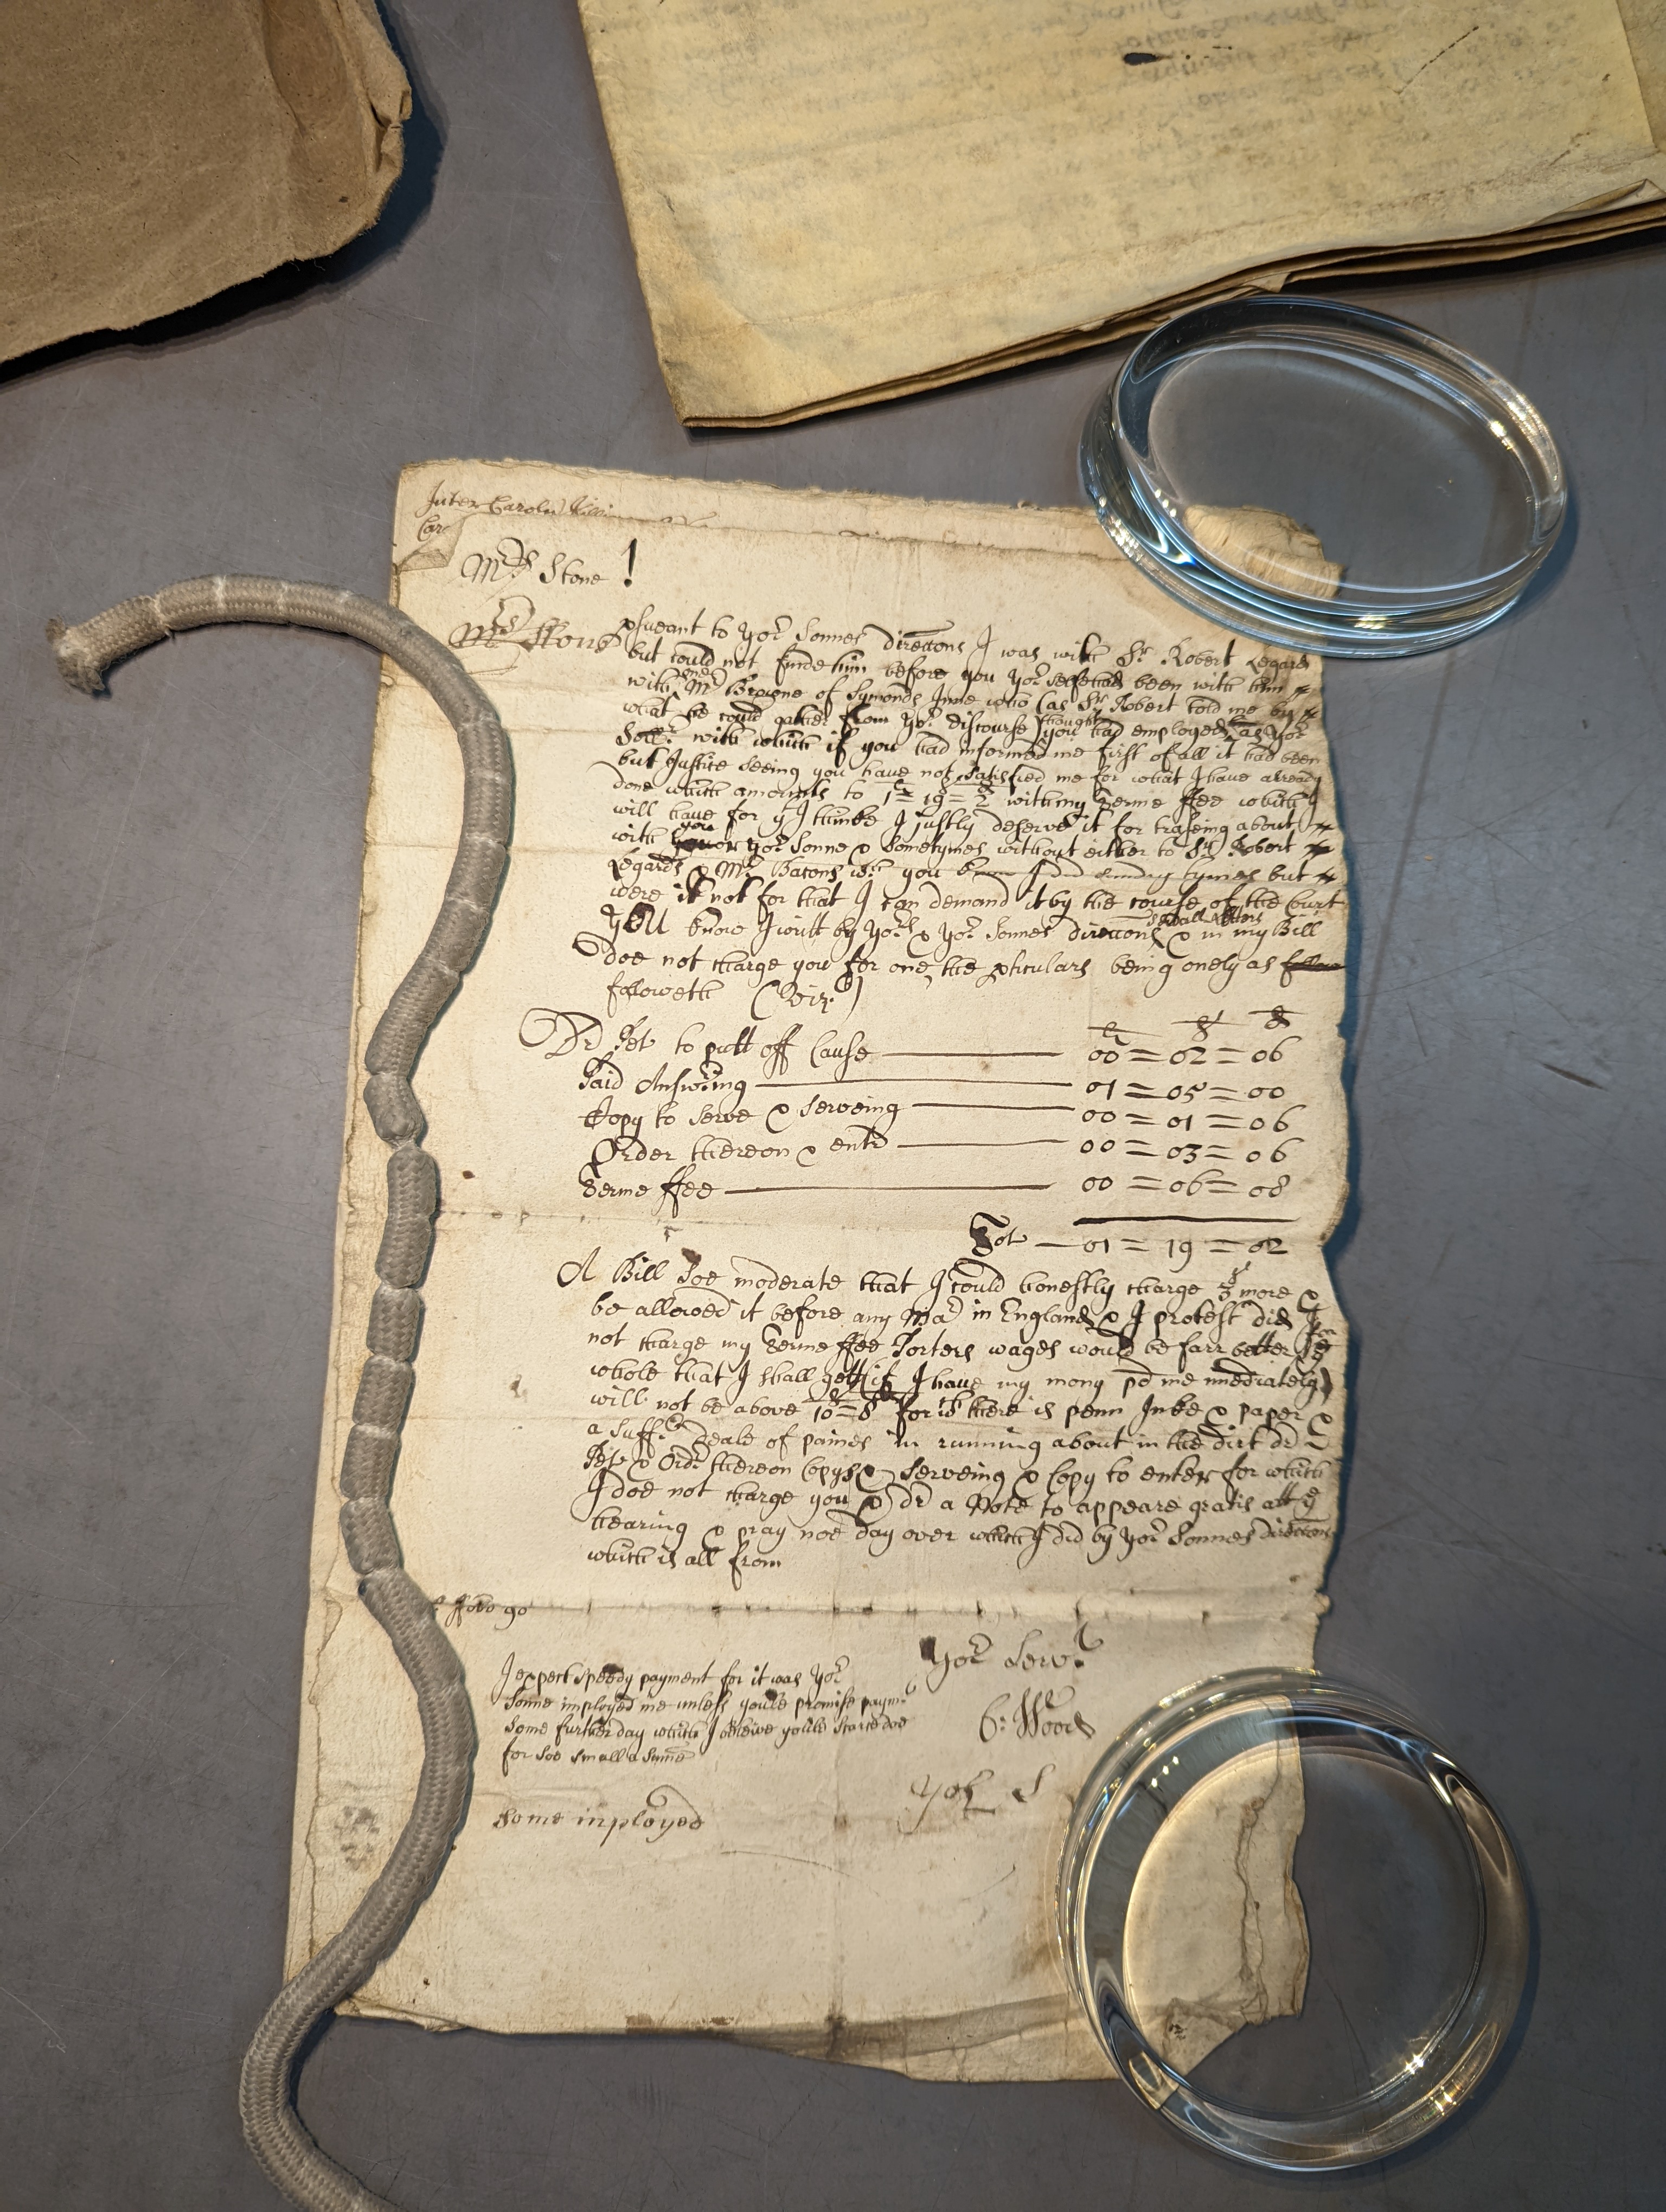 Inter Carolu
Car
Mrs Stone !
Mrs Stone
psueant to yor Sonnes direccons I was with Sr. Robert Legard
but could not finde him before you yor selfe had been with him
with one Mr Browne of Symonds Inne who (as Sr Robert told me by
what he could gather from yor discourse) thought you had employed as yor
Sollr. with which if you had informed me first of all it had been
but Justice seeing you have not satisfied me for what I have already
done which amounts to 1l = 19s = 2d with my Terme ffee which I
will have for yt I thinke I justly deserve it for traseing about
with you or yor Sonne & sometymes without either to Sr Robert
Legards & Mr Bacons wch you know I did sundry tymes but
were it not for that I can demand it by the course of the Court
You know I writt by yors & yor Sonnes direccons severall Letters & in my Bill
doe not charge you for one, the pticulars being onely as follow
followeth (Vizt)
l s d
Dr Pet to putt off Cause 00 = 02 = 06
Paid Answring 01 = 05 = 00
Copy to serve & serveing 00 = 01 = 06
Order thereon & entr 00 = 03 = 06
Terme ffee 00 = 06 = 08
Tot 01 = 19 = 02
A Bill soe moderate that I could honestly charge 5s more &
be allowed it before any Mar in England & I protest did I
not charge my Terme ffee Porters wages would be farr better for ye
whole that I shall gett (if I have my mony pd me imediately)
will not be above 10s = 8d for wch there is penn Inke & paper &
a sufft. deale of paines in running about in the dirt dr
Pet & Ordr thereon Copys & serveing & Copy to enter for which
I doe not charge you & dr a Note to appeare gratis att ye
hearing & pray noe day over which I did by yor Sonnes direccon
which is all from
ffebr 90
Yor Servt
C: Wood
I expect speedy payment for it was yor
Sonne imployed me unless you'le promise paymt
some further day which I beleive you'le scarce doe
for soe small a summe
Yor S
some imployed